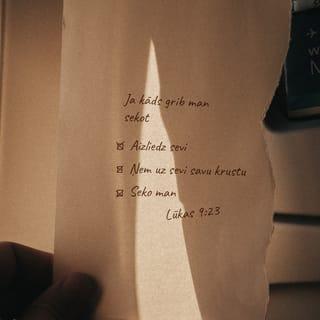 Ja kāds grib man
sekot
Aizliedz sevi
Nem uz sevi savu krustu
Seko man
Lūkas 9:23